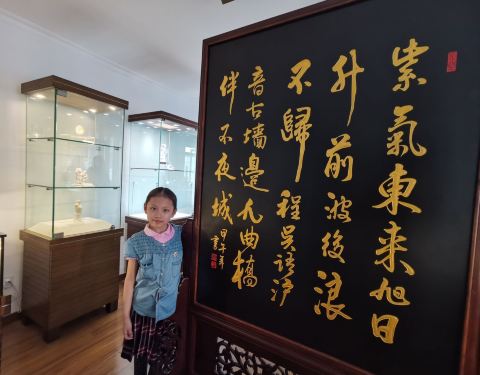 紫氣東来旭日
升前波後浪
不歸程吴語净
音古墙邊九曲橋
伴不夜城
甲午年
書